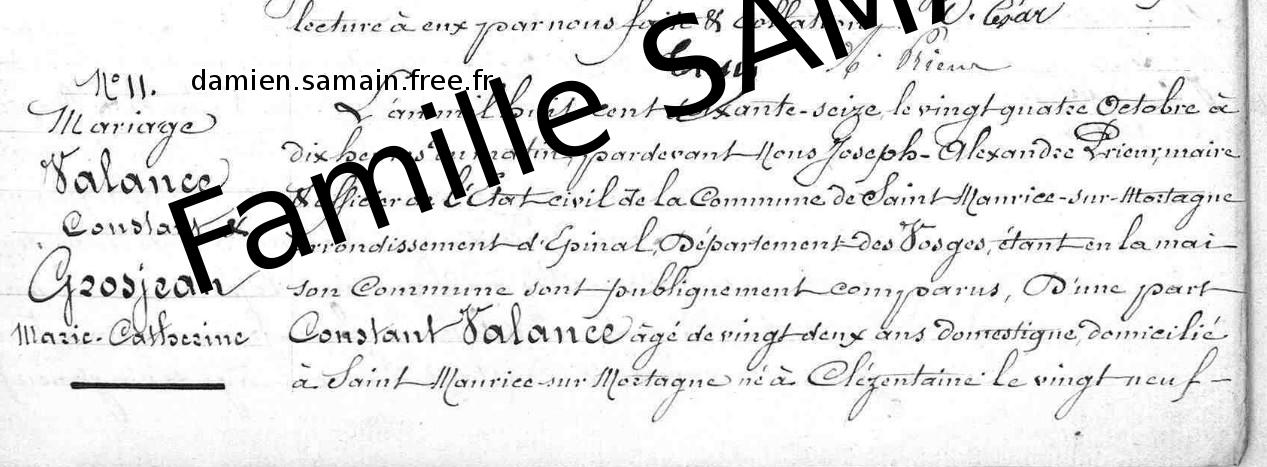 lecture à eux par nous faite & collation D. César
A. Prieur
N° 11.
Mariage
Valance
Constant &
Grosjean
Marie-Catherine
damien.samain.free.fr
Famille SAM
L'an mil huit cent soixante-seize, le vingt quatre Octobre à
dix heures du matin, pardevant Nous Joseph-Alexandre Prieur, maire
& officier de l'État civil de la Commune de Saint Maurice-sur-Mortagne
arrondissement d'Epinal, Département des Vosges, étant en la mai
son Commune sont publiquement comparus, D'une part
Constant Valance âgé de vingt deux ans domestique, domicilié
à Saint Maurice sur Mortagne né à Clézentaine le vingt neuf-